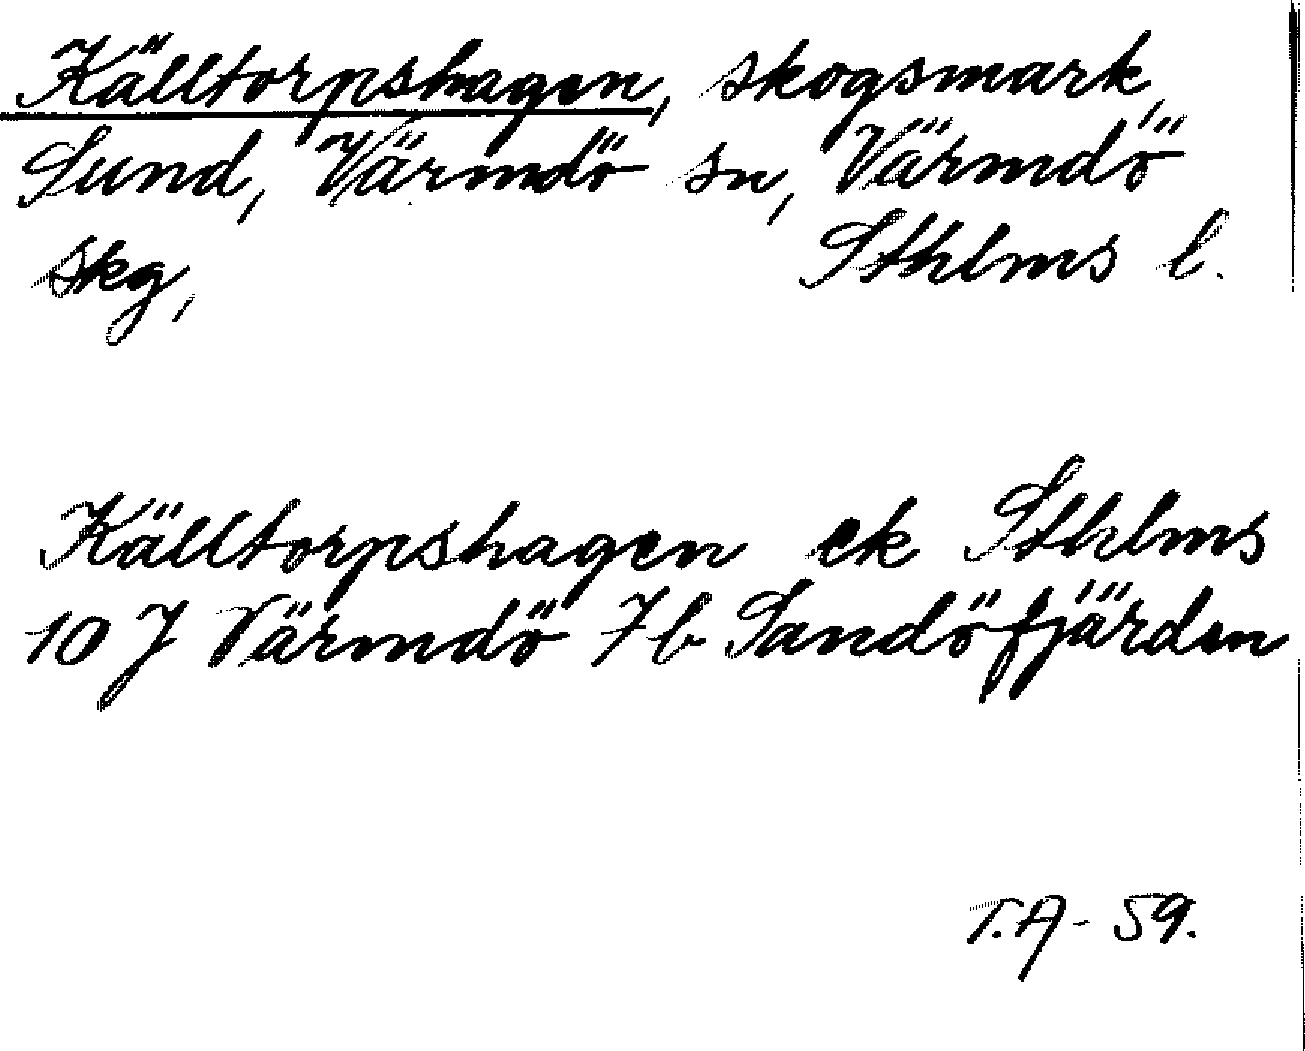 Källtorpshagen, skogsmark,
Sund, Värmdö sn, Värmdö
skg, Sthlms l.
Källtorpshagen ek Sthlms
10 J Värmdö 7b Sandöfjärden
T.A - 59.